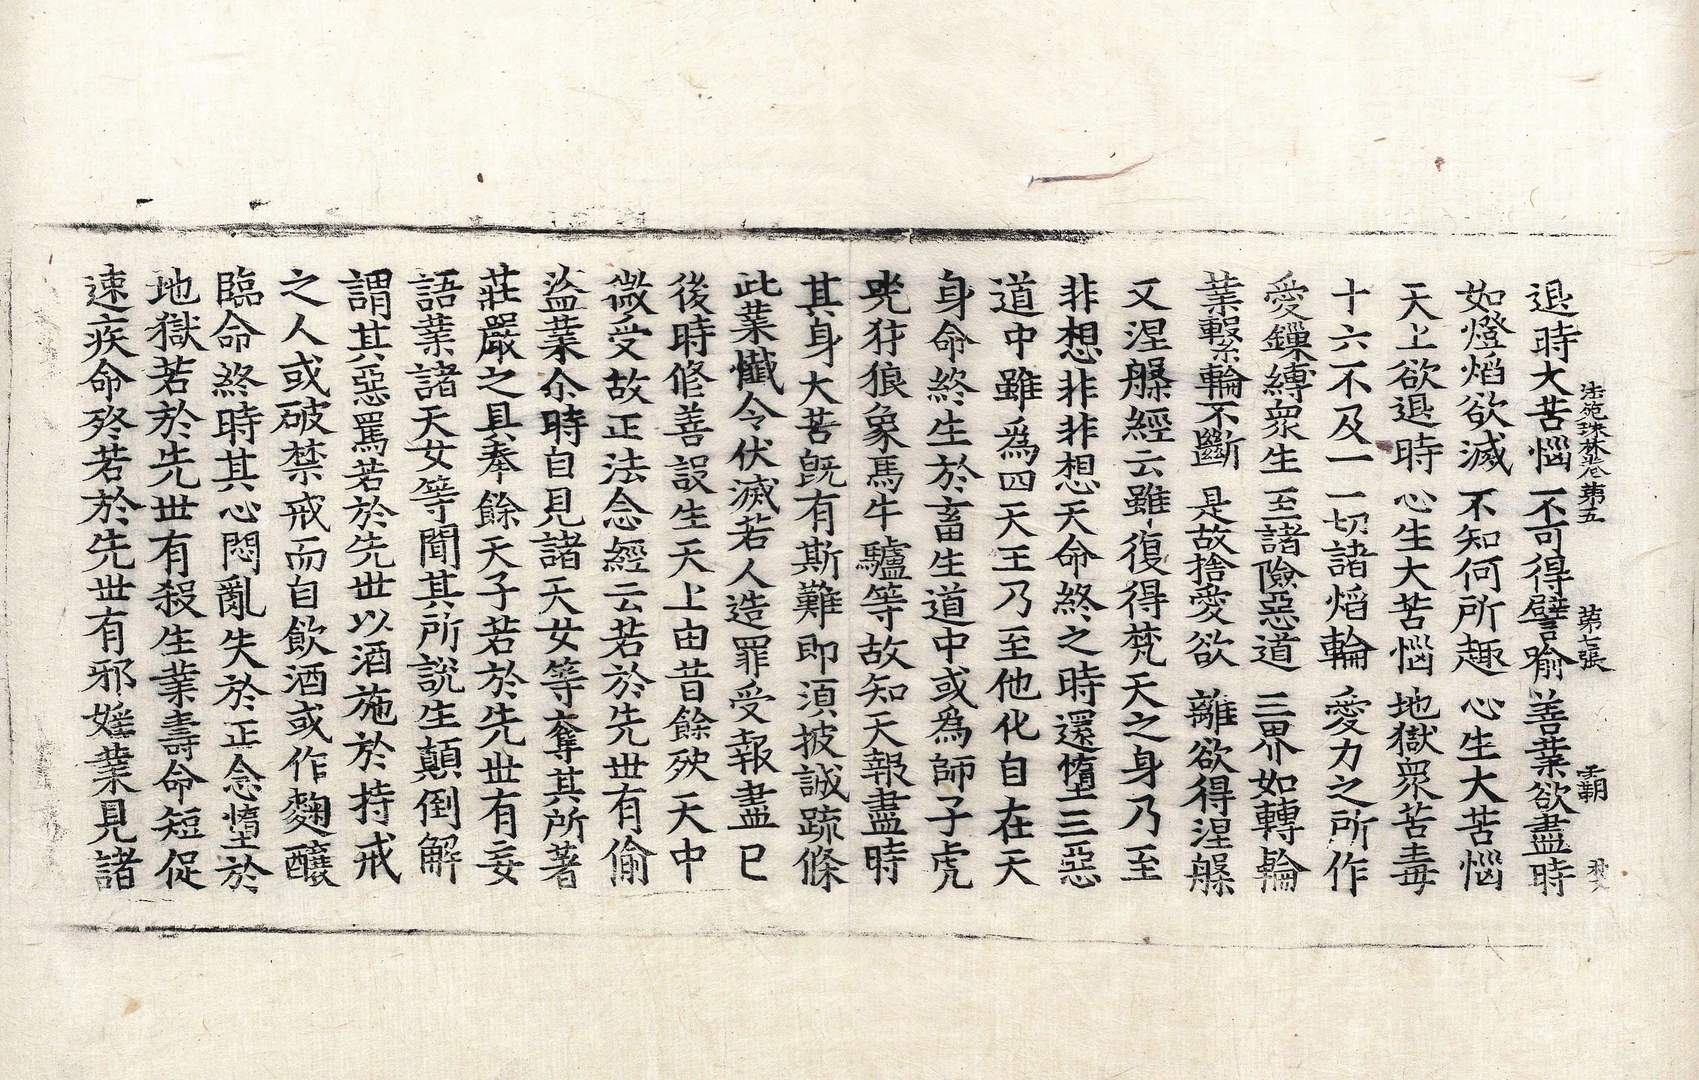 法苑珠林卷第五 第七張 霸
退時大苦惱 不可得譬喻 善業欲盡時
如燈焰欲滅 不知何所趣 心生大苦惱
天上欲退時 心生大苦惱 地獄衆苦毒
十六不及一 一切諸焰輪 愛力之所作
愛鏁縛衆生 至諸險惡道 三界如轉輪
業繫輪不斷 是故捨愛欲 離欲得涅槃
又涅槃經云雖復得梵天之身乃至
非想非非想天命終之時還墮三惡
道中雖爲四天王乃至他化自在天
身命終生於畜生道中或爲師子虎
兕犲狼象馬牛驢等故知天報盡時
其身大苦旣有斯難即須披誠疏條
此業懺令伏滅若人造罪受報盡已
後時修善設生天上由昔餘殃天中
微受故正法念經云若於先世有偷
盜業尒時自見諸天女等奪其所著
莊嚴之具奉餘天子若於先世有妄
語業諸天女等聞其所說生顛倒解
謂其惡罵若於先世以酒施於持戒
之人或破禁戒而自飲酒或作麴釀
臨命終時其心悶亂失於正念墮於
地獄若於先世有殺生業壽命短促
速疾命終若於先世有邪婬業見諸